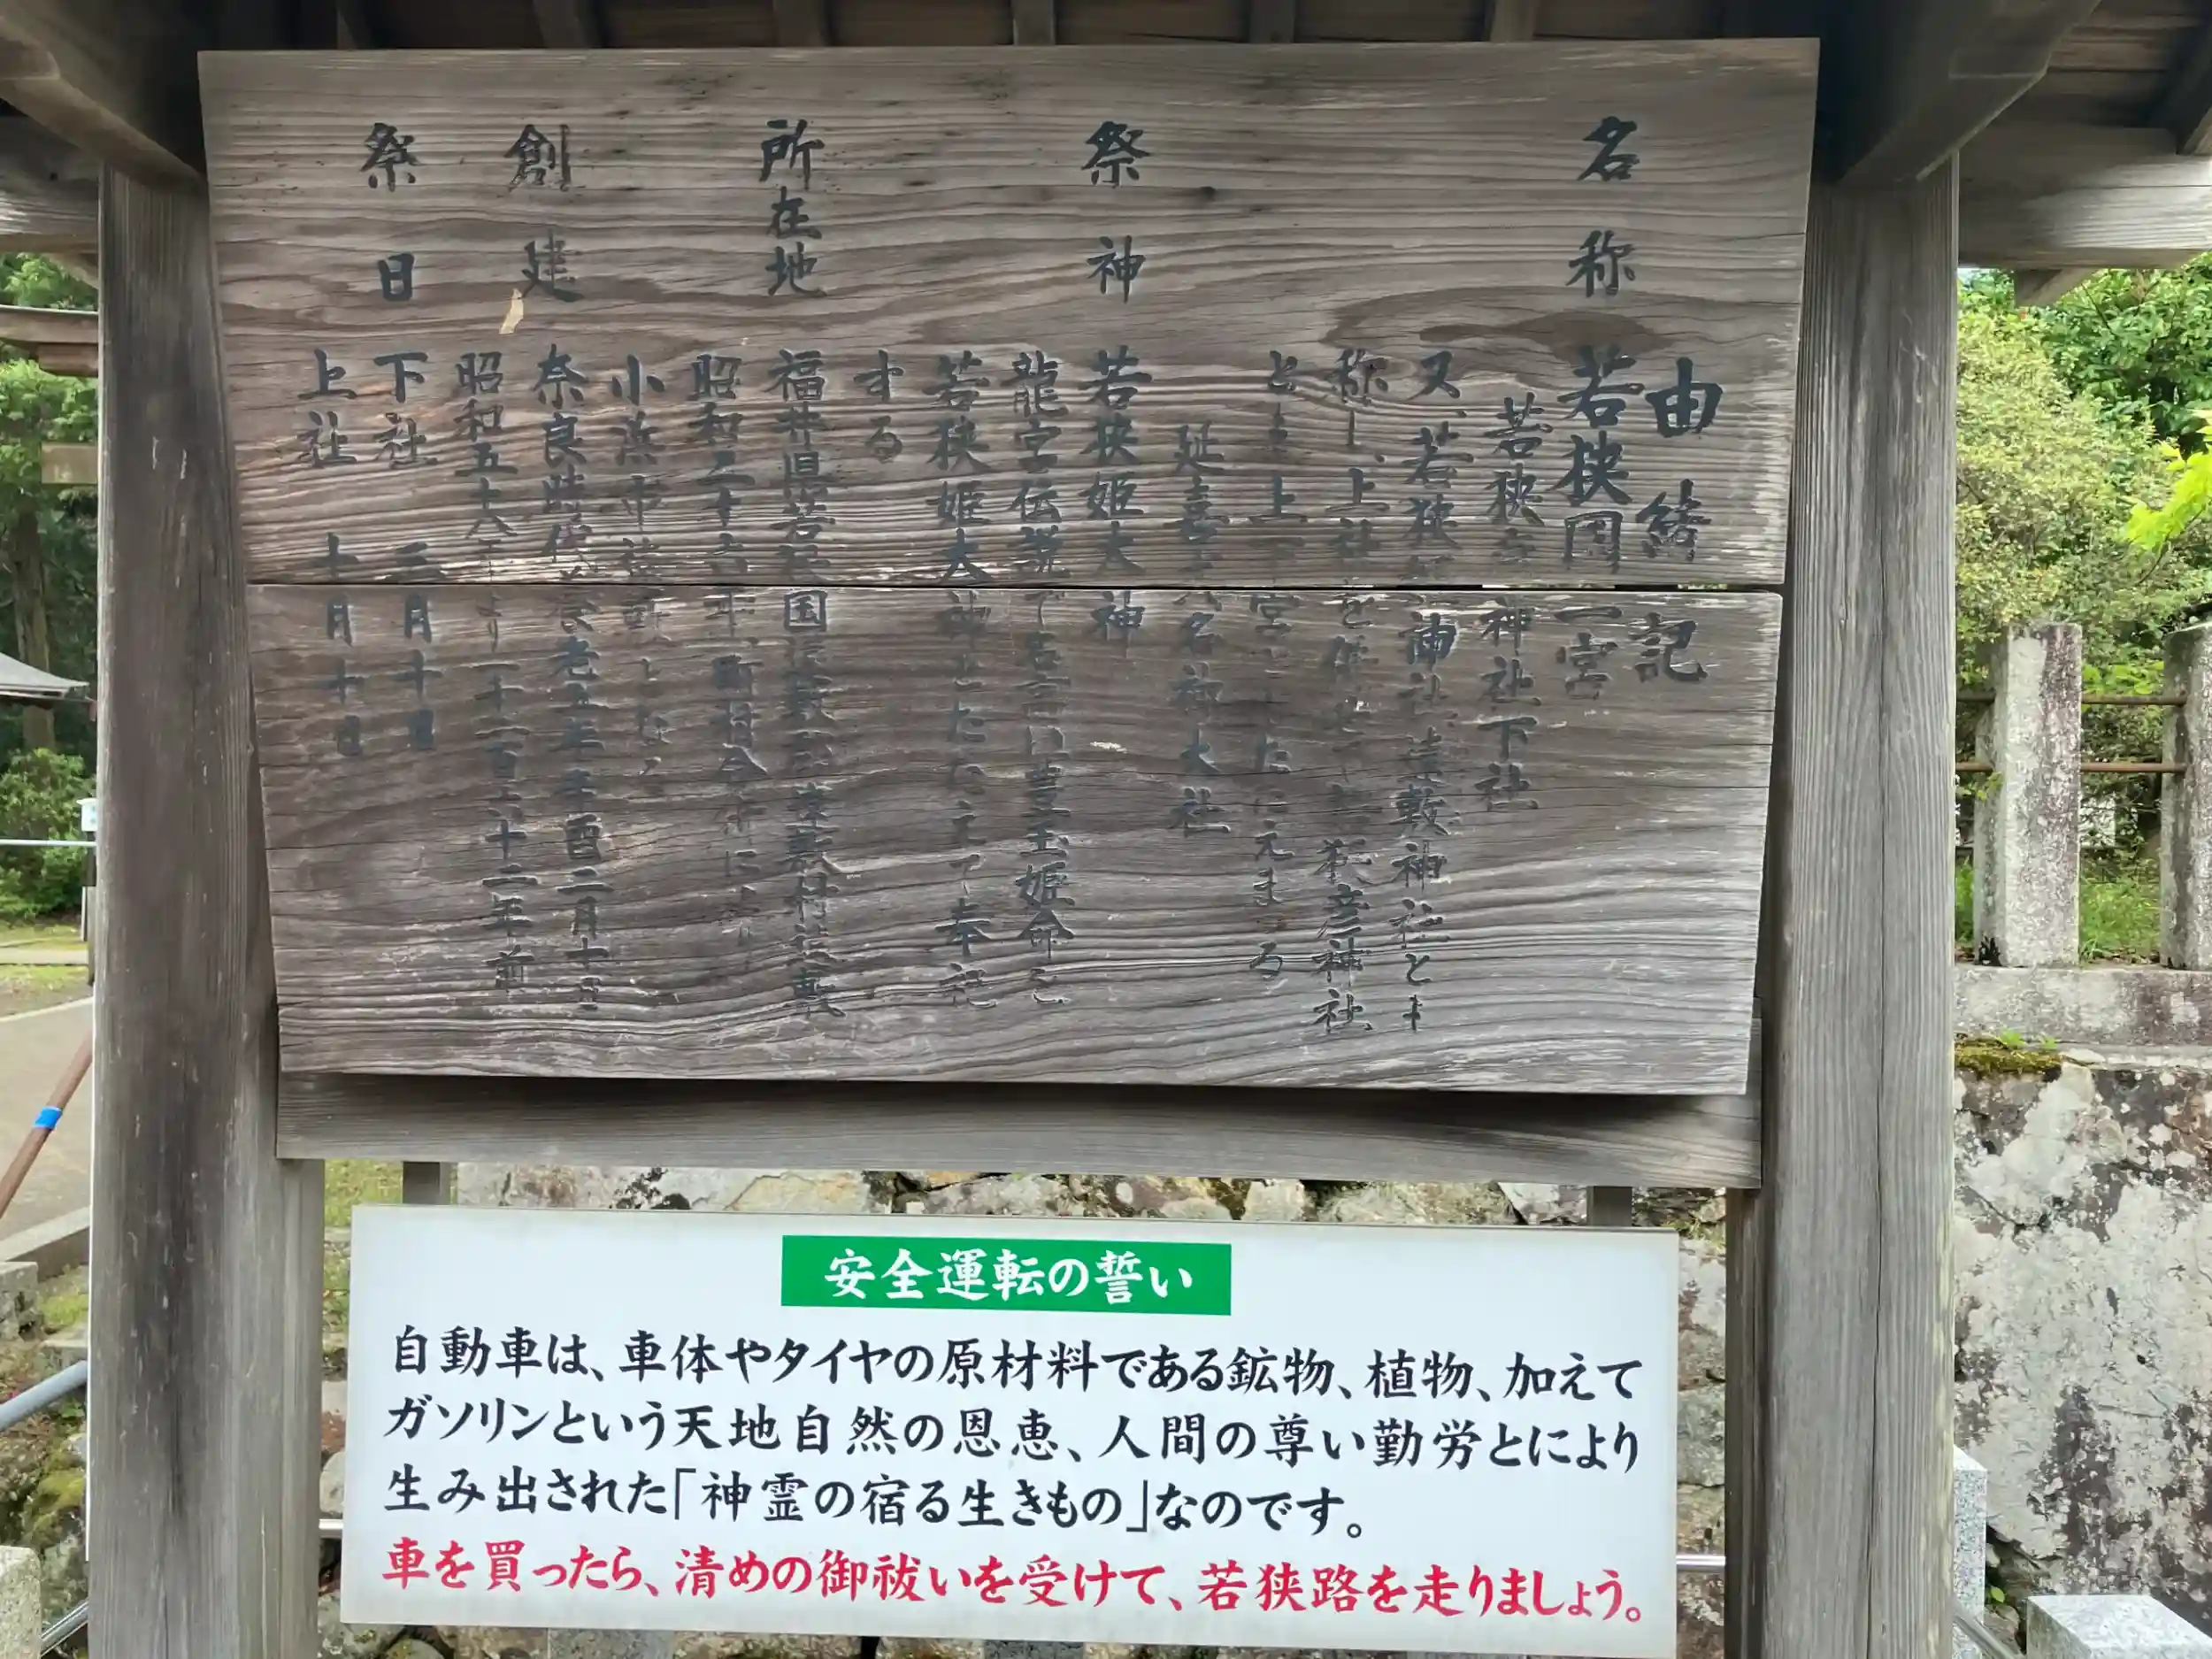 由緒記
名称 若狭国一宮
若狭 神社下社
又、若狭 神社遠敷神社とも
称し、上社を併せて若狭彦神社
とも上 宮とたたえまつる
延喜式名神大社
祭神 若狭姫大神
龍宮伝説で名高い豊玉姫命を
若狭姫大神とたたえて奉祀
する
所在地 福井県若狭国遠敷郡遠敷村遠敷
昭和二十六年町村合併により
小浜市遠敷となる
創建 奈良時代 養老五年辛酉二月十日
昭和五十八年より一千二百六十二年前
祭日 下社 三月十日
上社 十月十日
安全運転の誓い
自動車は、車体やタイヤの原材料である鉱物、植物、加えて
ガソリンという天地自然の恩恵、人間の尊い勤労とにより
生み出された「神霊の宿る生きもの」なのです。
車を買ったら、清めの御祓いを受けて、若狭路を走りましょう。